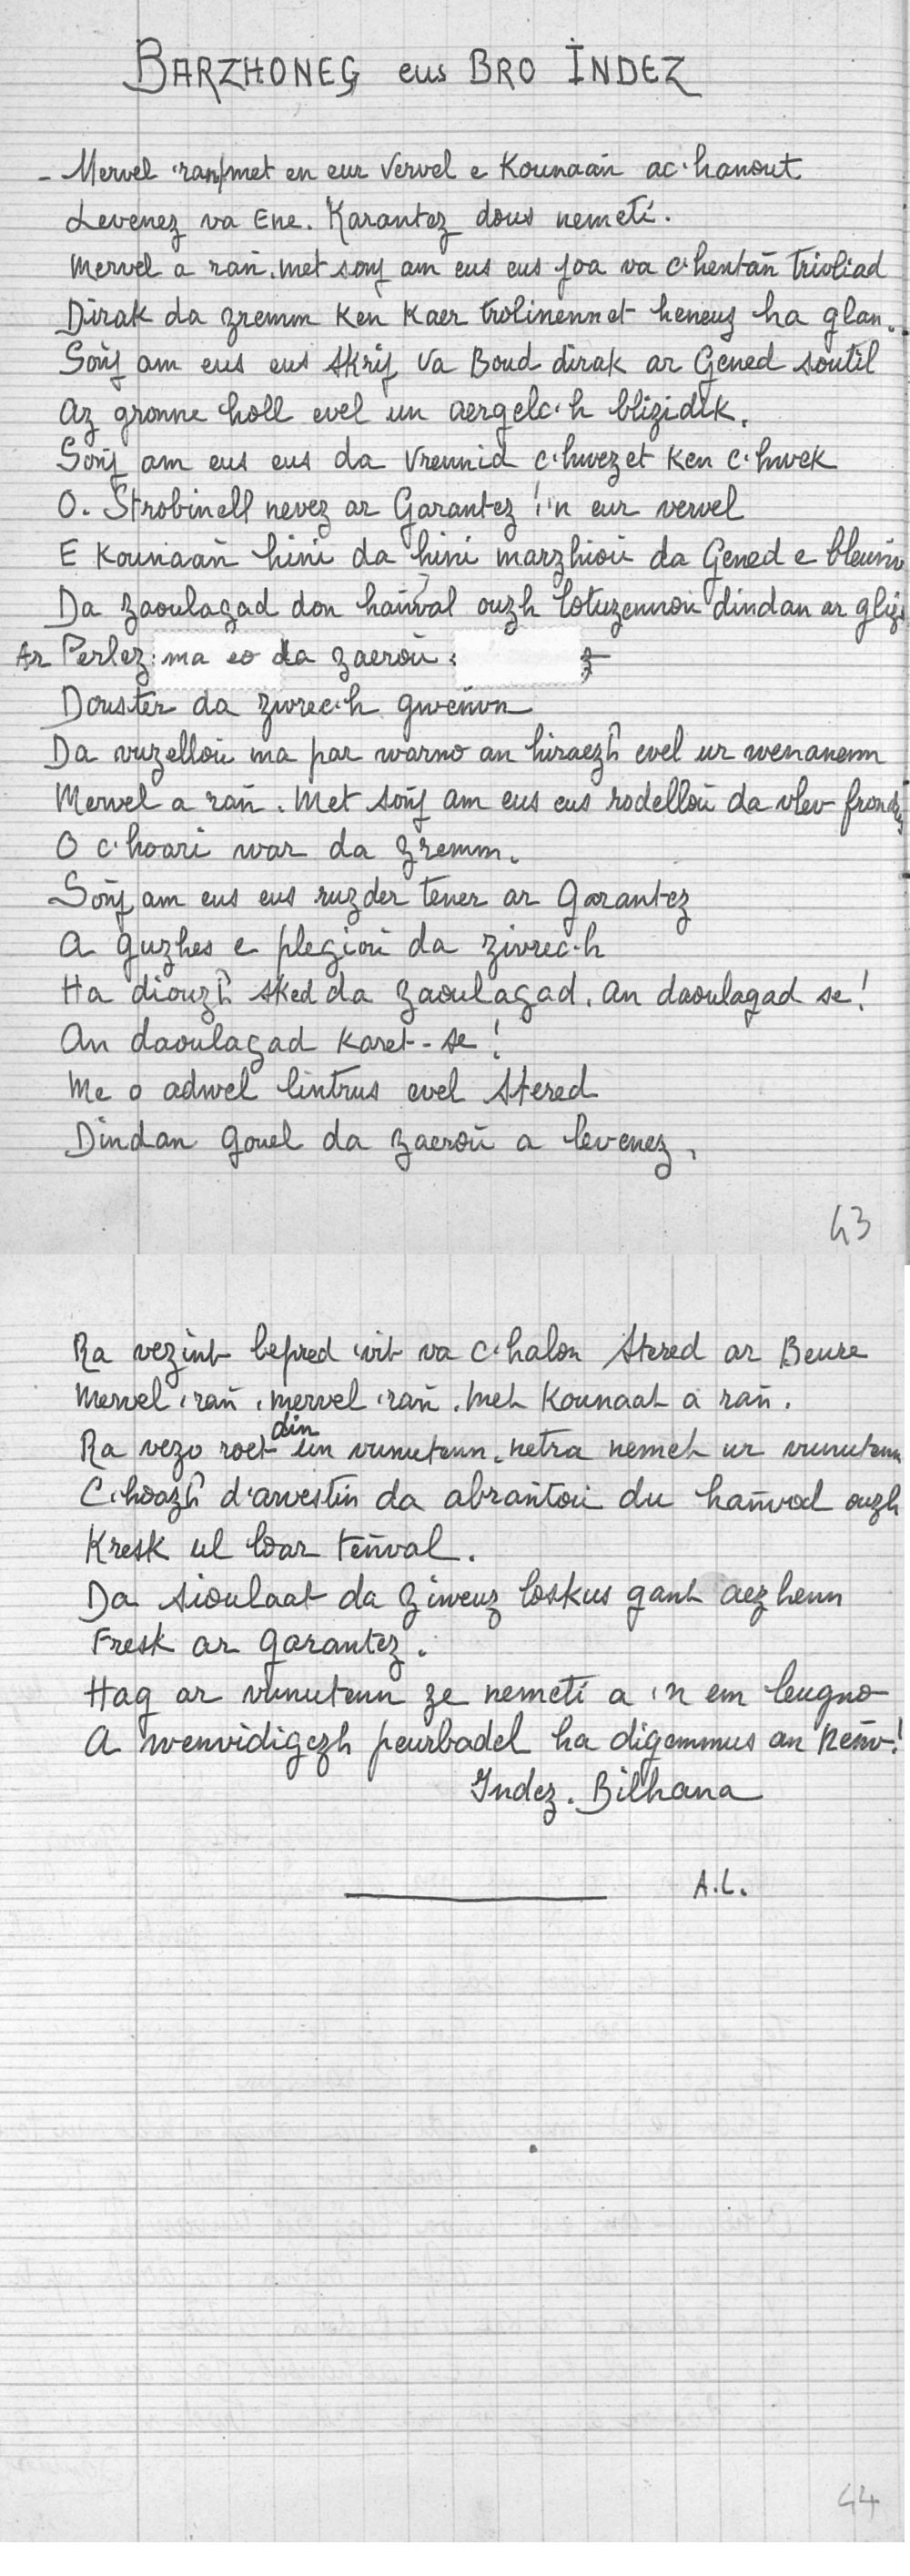 BARZHONEG eus BRO INDEZ
- Mervel 'ran met en eur vervel e Kounaañ ac'hanout
Levenez va Ene. Karantez dous nemeti.
Mervel a rañ. met soñj am eus eus joa va c'hentañ Trivliad
Dirak da zremm Ken Kaer trolinennet heneuz ha glan.
Soñj am eus eus skrij va Boud dirak ar Gened soutil
Az gronne holl evel un aergelc'h blizidik.
Soñj am eus eus da vrennid c'hwezet Ken c'hwek
O. Strobinell nevez ar Garantez ! 'n eur vervel
E Kounaañ hini da hini marzhioù da Gened e bleuñv
Da zaoulagad don hañval ouzh lotuzennoù dindan ar gliz
Ar Perlez: ma eo da zaeroù :
Douster da zivrec'h gweñvn
Da vuzelloù ma par warno an hiraezh evel ur wenanenn
Mervel a rañ. Met soñj am eus eus rodelloù da vlev frondus
O c'hoari war da zremm.
Soñj am eus eus ruzder tener ar Garantez
A guzhes e plegioù da zivrec'h
Ha diouzh sked da zaoulagad. An daoulagad se!
An daoulagad Karet-se!
Me o adwel lintrus evel Stered
Dindan Gouel da zaeroù a levenez.
43
Ra vezint bepred 'vit va C'halon Stered ar Beure
Mervel 'rañ, mervel 'rañ. Met Kounaat a rañ.
Ra vezo roet din un vunutenn. netra nemet ur vunutenn
C'hoazh d'arvestin da abrañtoù du hañval ouzh
Kresk ul loar teñval.
Da sioulaat da ziweuz loskus gant aezhenn
Fresk ar Garantez.
Hag ar vunutenn ze nemeti a 'n em leugno
A wenvidigezh peurbadel ha digemmus an Neñv!
Indez. Bilhana
A.L.
44